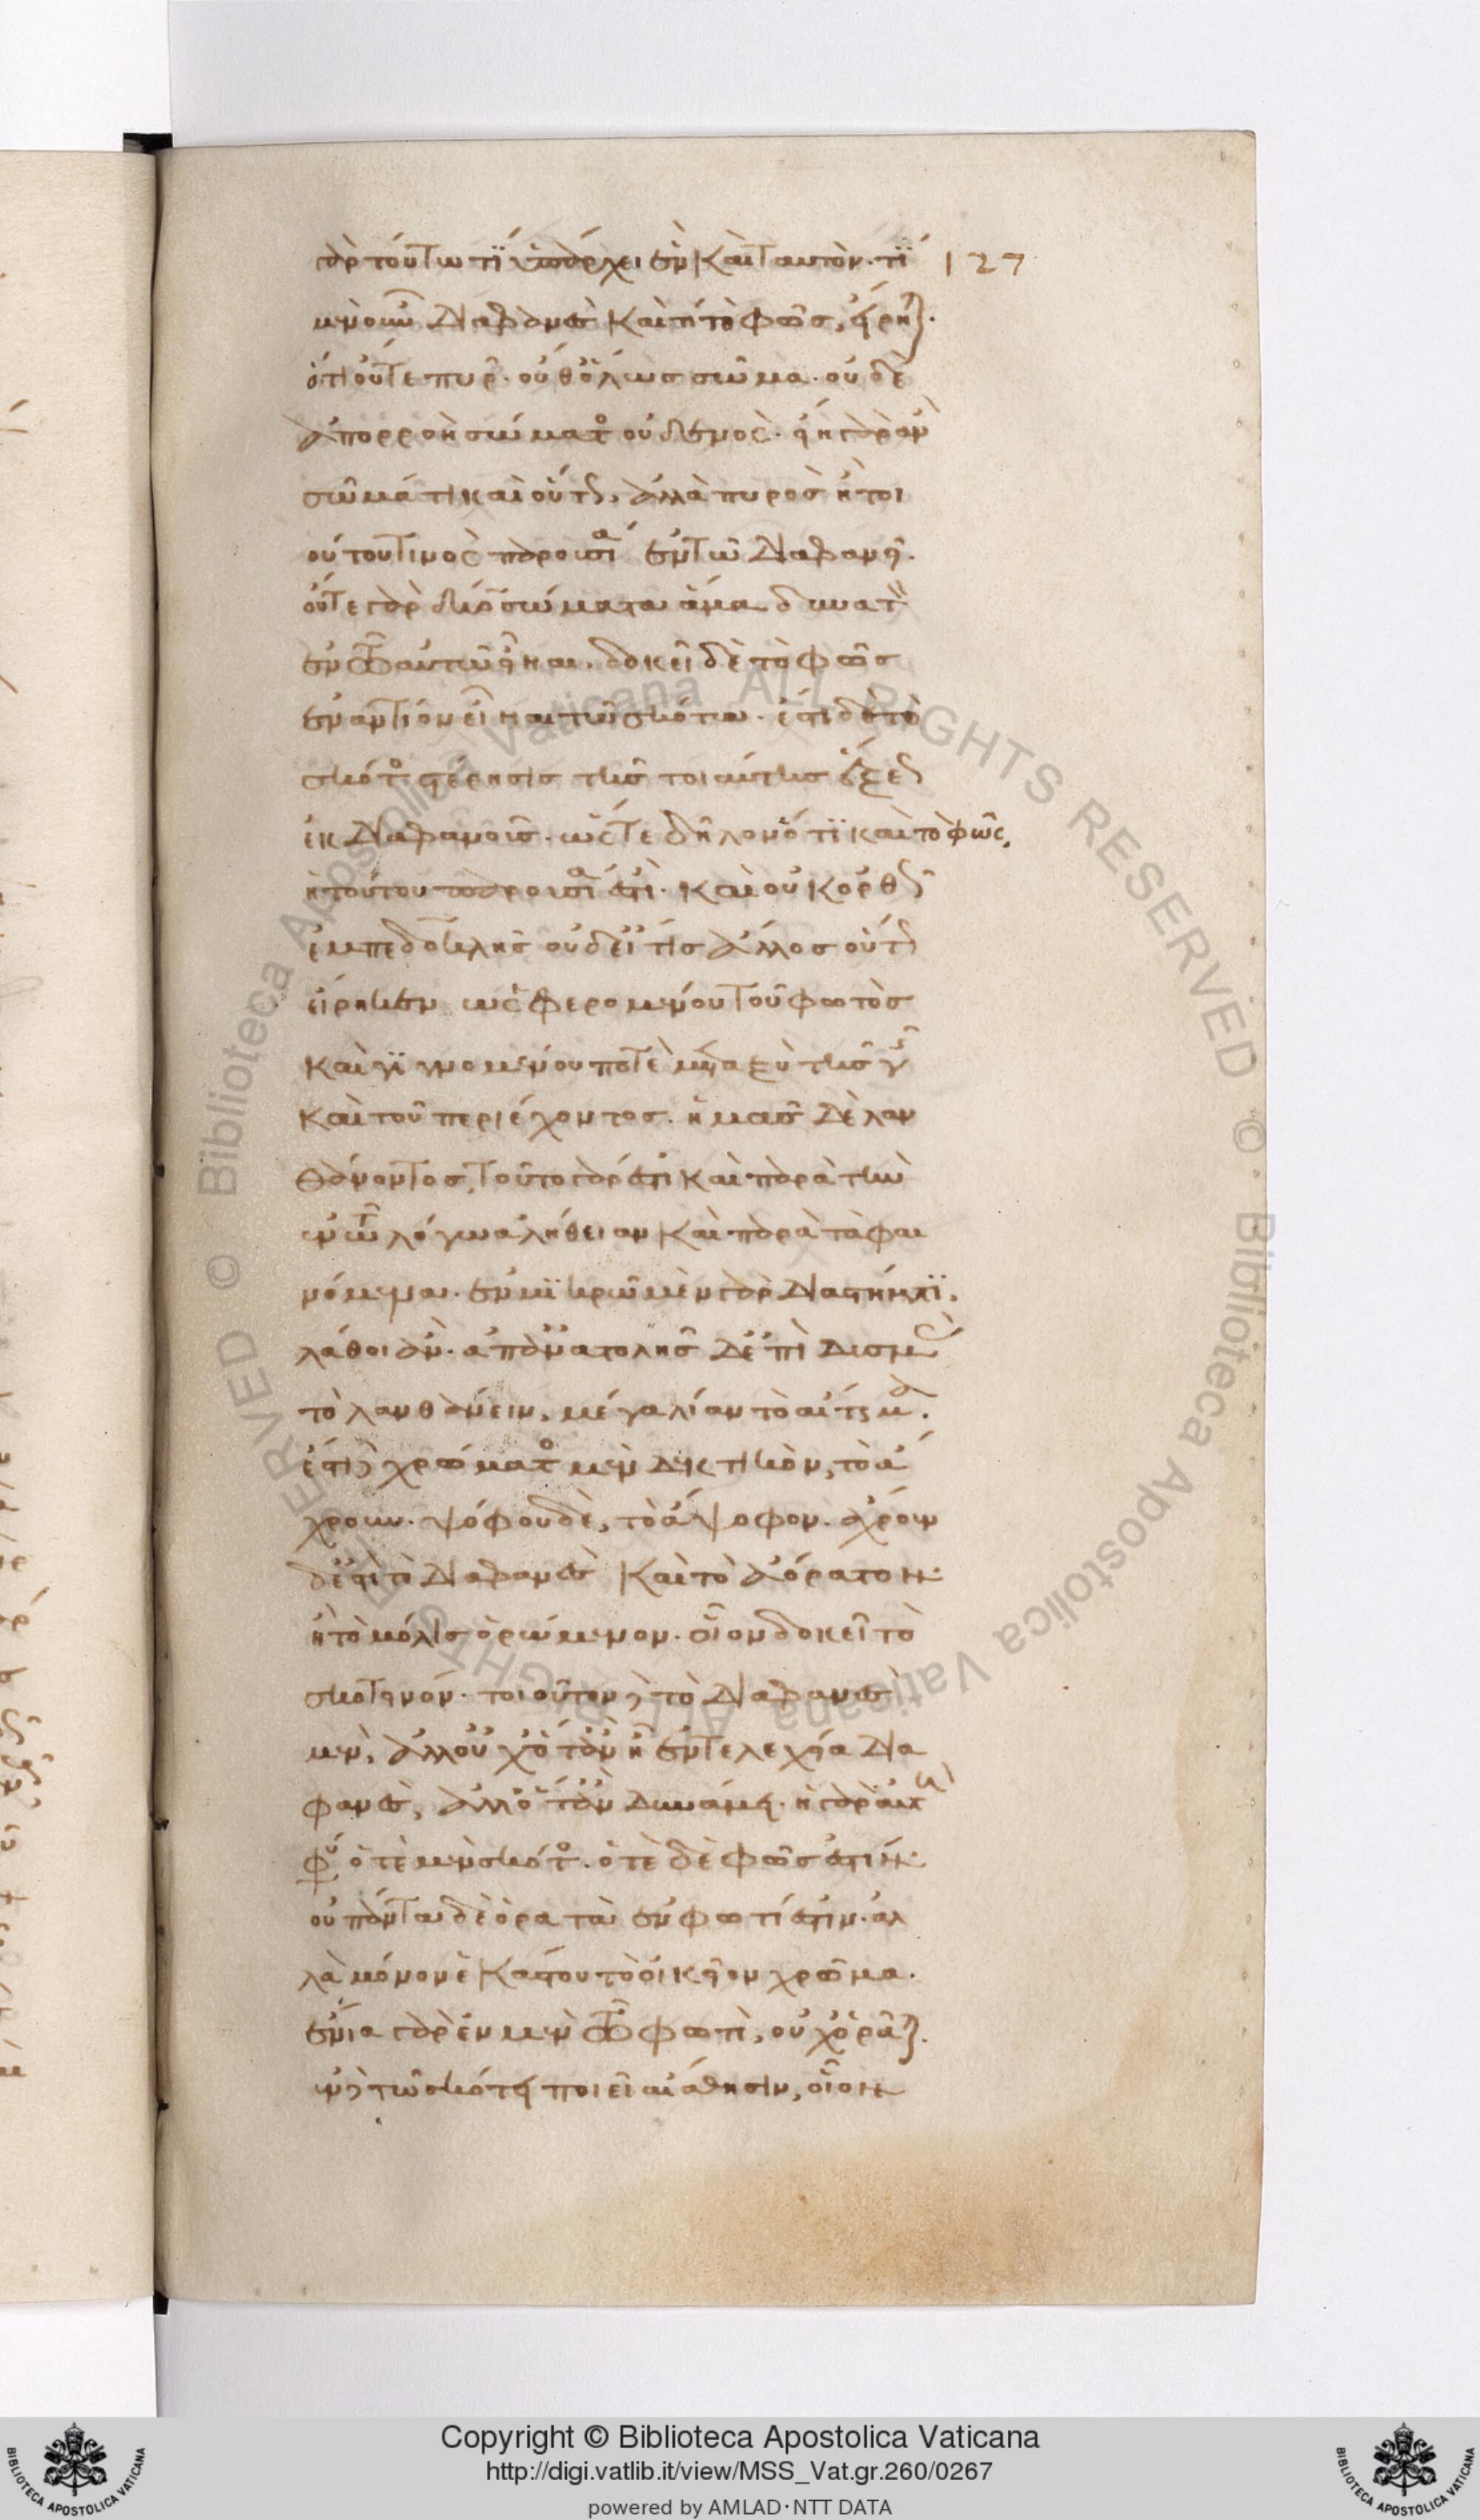 γὰρ τούτω τϊ ὑπάρχει ἓν καὶ ταυτόν. τί 127
μὲν οὖν διαφανὲς καὶ τί τὸ φῶς, εἴρηται.
ὅτι οὔτε πῦρ. οὔθ' ὅλως σῶμα. οὐδὲ
ἀπορροὴ σώματος οὐδενός. εἴη γὰρ ἂν
σῶμά τι καὶ οὕτως. ἀλλὰ πυρὸς ἢ τοι
ούτου τινὸς παρουσία ἐν τῷ διαφανεῖ.
οὔτε γὰρ δύο σώματα ἅμα δυνατὸν
ἐν τῷ αὐτῷ εἶναι. δοκεῖ δὲ τὸ φῶς
ἐναντίον εἶναι τῷ σκότει. ἔστι δὲ τὸ
σκότος στέρησις τῆς τοιαύτης ἕξεως
ἐκ διαφανοῦς. ὥστε δῆλον ὅτϊ καὶ τὸ φῶς,
ἡ τούτου παρουσία ἐστί. καὶ οὐκ ὀρθῶς
ἐμπεδοκλῆς οὐδ' εἴ τις ἄλλος οὕτως
εἴρηκεν ὡς φερομένου τοῦ φωτὸς
καὶ γϊγνομένου ποτὲ μεταξὺ τῆς γῆς
καὶ τοῦ περιέχοντος. ἡμᾶς δὲ λαν
θάνοντος, τοῦτο γάρ ἐστι καὶ παρὰ τὴν
ἐν τῷ λόγω ἀλήθειαν καὶ παρὰ τὰ φαι
νόμενα. ἐν μϊκρῶ μὲν γὰρ διαστήματϊ.
λάθοι ἄν. ἀπ' ἀνατολῆς δ' ἐπὶ δυσμὰς
τὸ λανθάνειν, μέγα λίαν τὸ αἴτημα.
ἔστι δὲ χρώματος μὲν δεκτικὸν, τὸ ἄ
χρουν. ψόφου δὲ, τὸ ἄψοφον. ἄχρουν
δ' ἐστὶ τὸ διαφανὲς καὶ τὸ ἀόρατον.
ἢ τὸ μόλις ὁρώμενον. οἷον δοκεῖ τὸ
σκοτεινόν. τοιοῦτον δὲ τὸ διαφανὲς
μὲν, ἀλλ' οὐχ ὅταν ἦ ἐντελεχεία δια
φανὲς, ἀλλ' ὅταν δυνάμει. ἡ γὰρ αὐτὴ
φύσις ὁτὲ μὲν σκότος. ὁτὲ δὲ φῶς ἐστιν.
οὐ πάντα δὲ ὁρατὰ ἐν φωτί ἐστιν. ἀλ
λὰ μόνον ἑκάστου τὸ οἰκεῖον χρῶμα.
ἔνια γὰρ ἐν μὲν τῷ φωτὶ, οὐχ ὁρᾶται.
ἐν δὲ τῷ σκότει ποιεῖ αἴσθησιν, οἷον
Copyright © Biblioteca Apostolica Vaticana
http://digi.vatlib.it/view/MSS_Vat.gr.260/0267
powered by AMLAD·NTT DATA